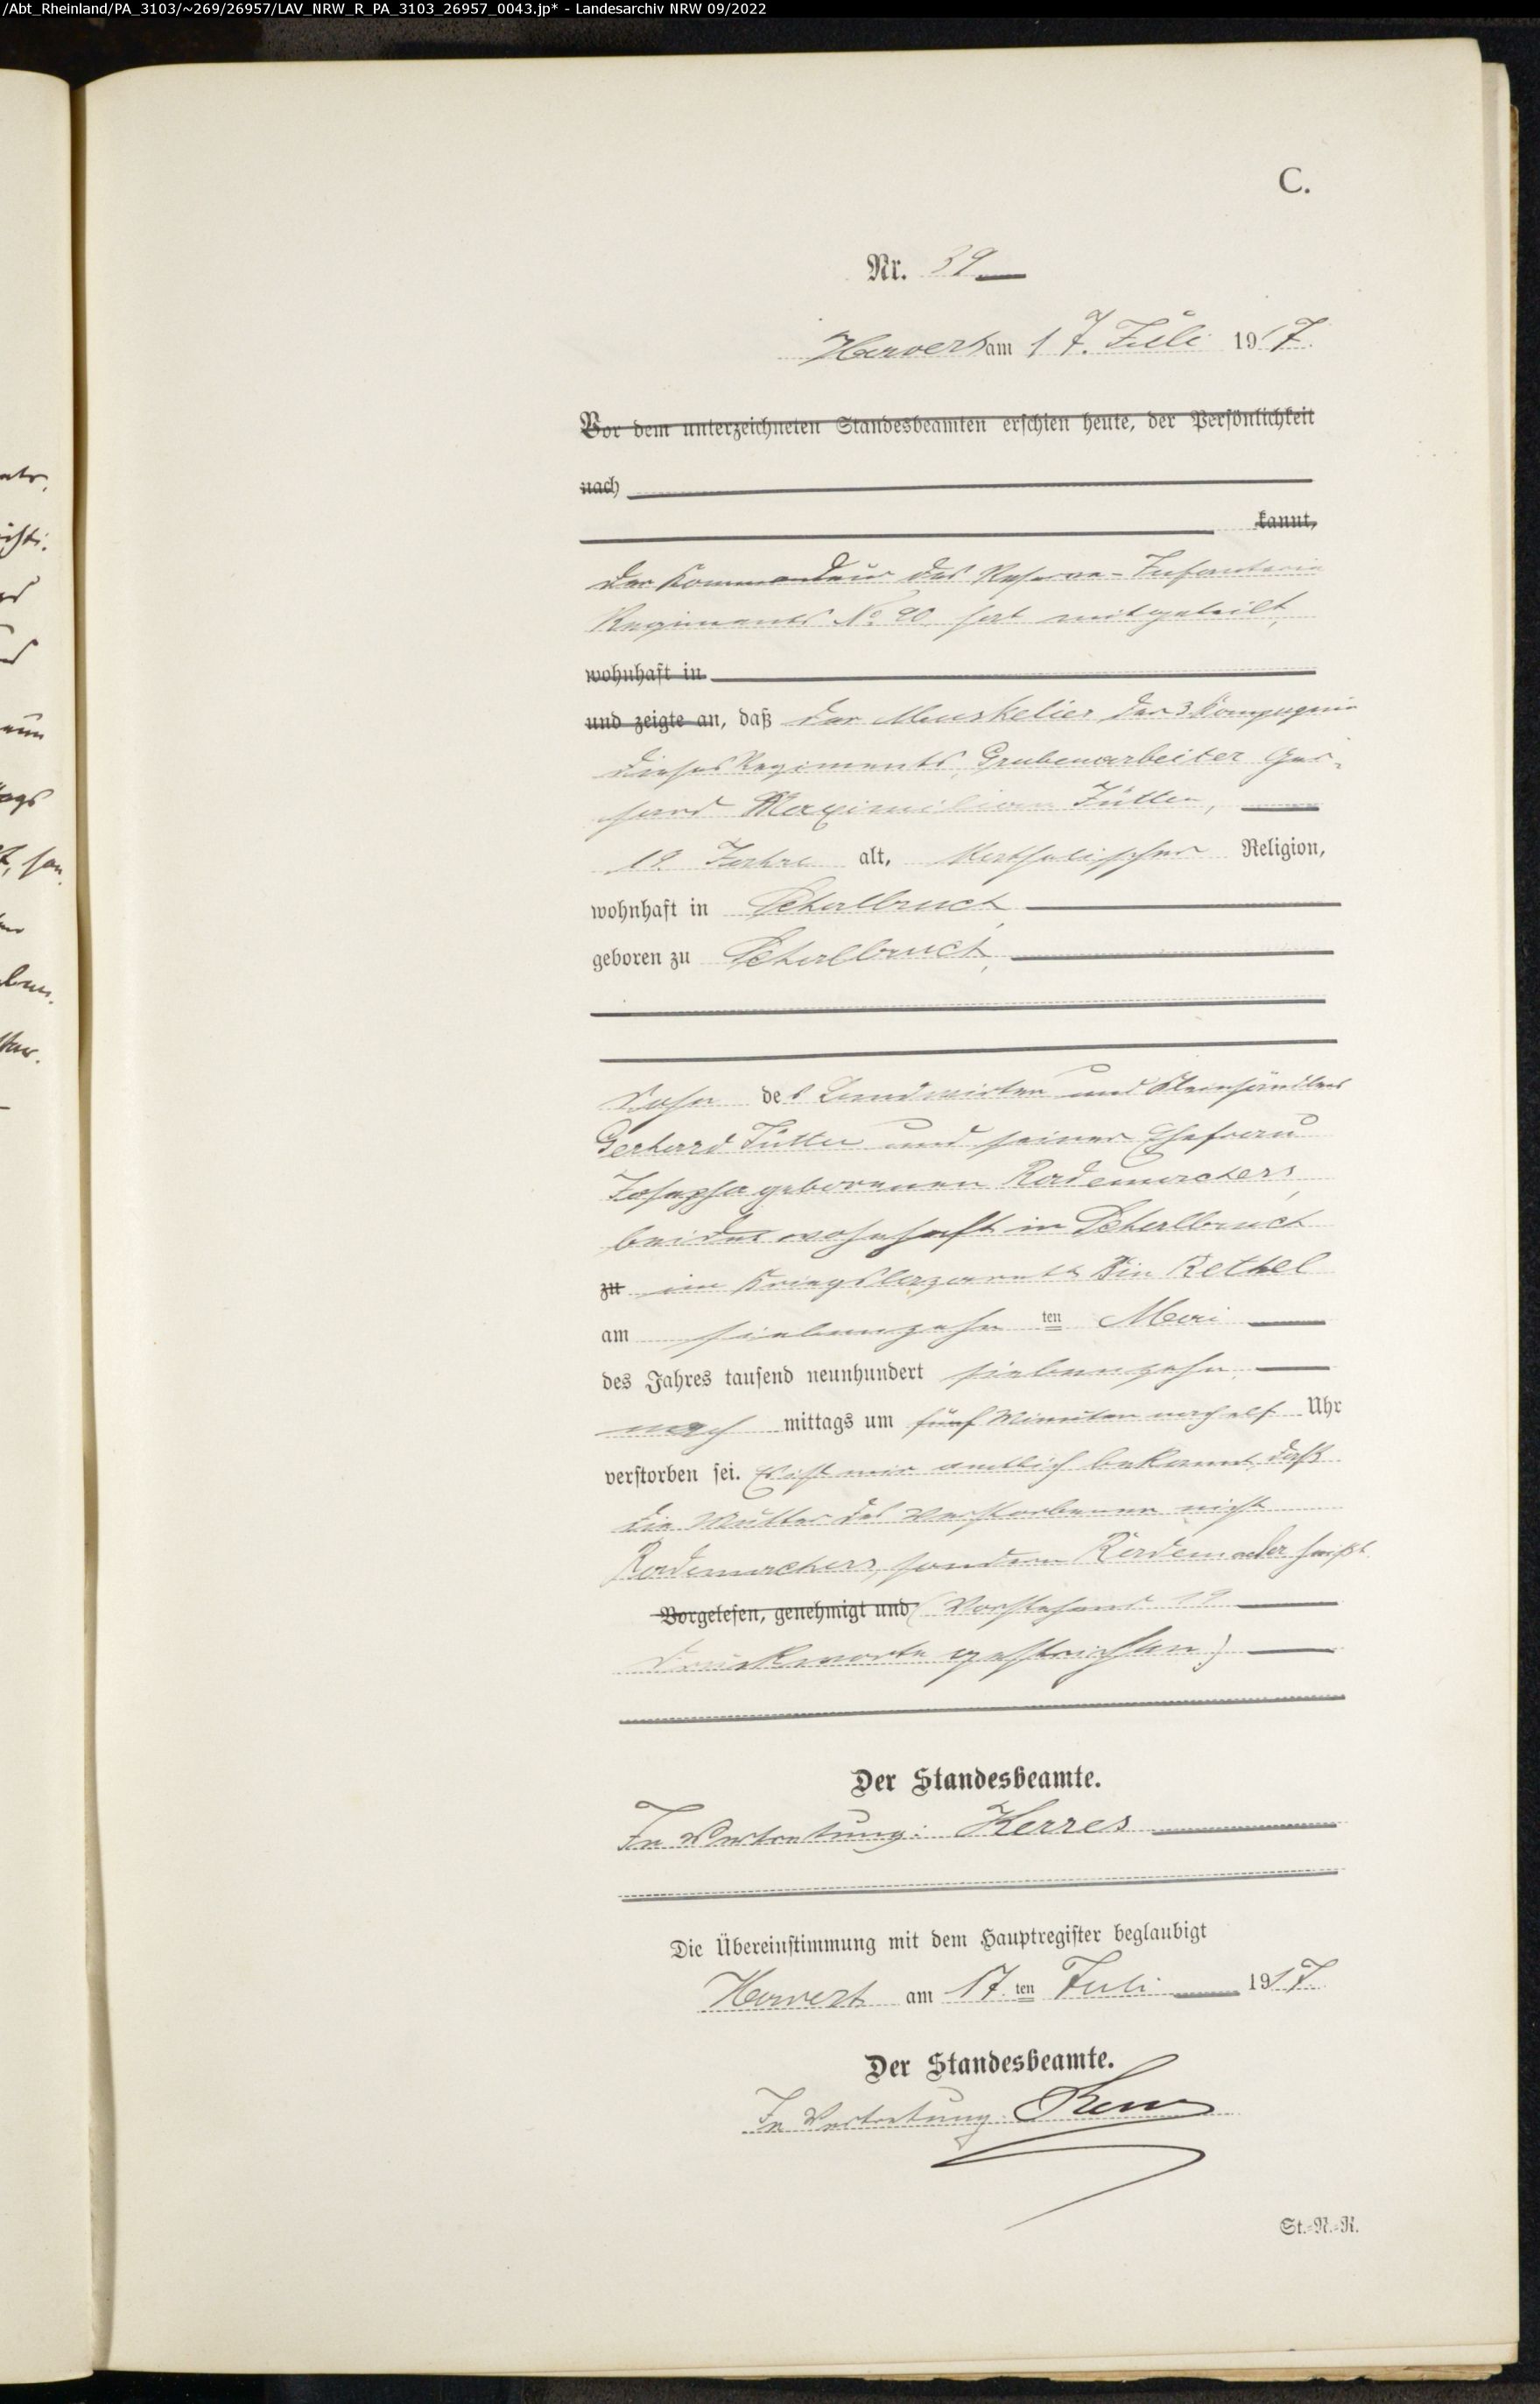 /Abt_Rheinland/PA_3103/~269/26957/LAV_NRW_R_PA_3103_26957_0043.jp* - Landesarchiv NRW 09/2022
C.
Nr. 39
Havert am 17. Juli 1917.
Vor dem unterzeichneten Standesbeamten erschien heute, der Persönlichkeit
nach
kannt,
der Kommandeur des Reserve-Infanterie
Regiments No 90, hat mitgeteilt,
wohnhaft in
und zeigte an, daß der Muskelier der 3 Kompagnie
dieses Regiments, Grubenarbeiter Ger-
hard Maximilian Jütten,
19 Jahre alt, katholischer Religion,
wohnhaft in Schalbruch,
geboren zu Schalbruch,
Sohn des Landwirten und Kleinhändlers
Gerhard Jütten und seiner Ehefrau
Josepha geborenen Rademachers,
beide wohnhaft in Schalbruch
zu im Kriegslazarett in Rethel
am siebenzehn ten Mai
des Jahres tausend neunhundert siebenzehn
nach mittags um fünf Minuten nach elf Uhr
verstorben sei. Es ist mir amtlich bekannt, daß
die Mutter des Verstorbenen nicht
Rademachers, sondern heißt.
Vorgelesen, genehmigt und (Vorstehend 19
Druckworte gestrichen)
Der Standesbeamte.
In Vertretung: Kerres
Die Übereinstimmung mit dem Hauptregister beglaubigt
Havert am 17. ten Juli 1917
Der Standesbeamte.
In Vertretung
St.-N.-R.